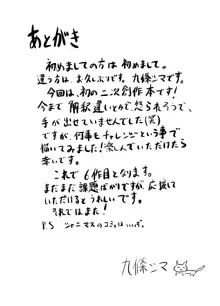 あとがき
初めましての方は 初めまして。
違う方は、お久しぶりです。九條シマです。
今回は、初の二次創作本です!
今まで 解釈違いとかで、怒られそうで、
手が出せていませんでした(笑)
ですが、何事もチャレンジという事で
描いてみました!楽しんでいただけたら
幸いです。
これで 6作目となります。
まだまだ課題ばかりですが、応援して
いただけるとうれしいです。
それではまた!
P.S シャニマスのコミュはいいぞ。
九條シマ